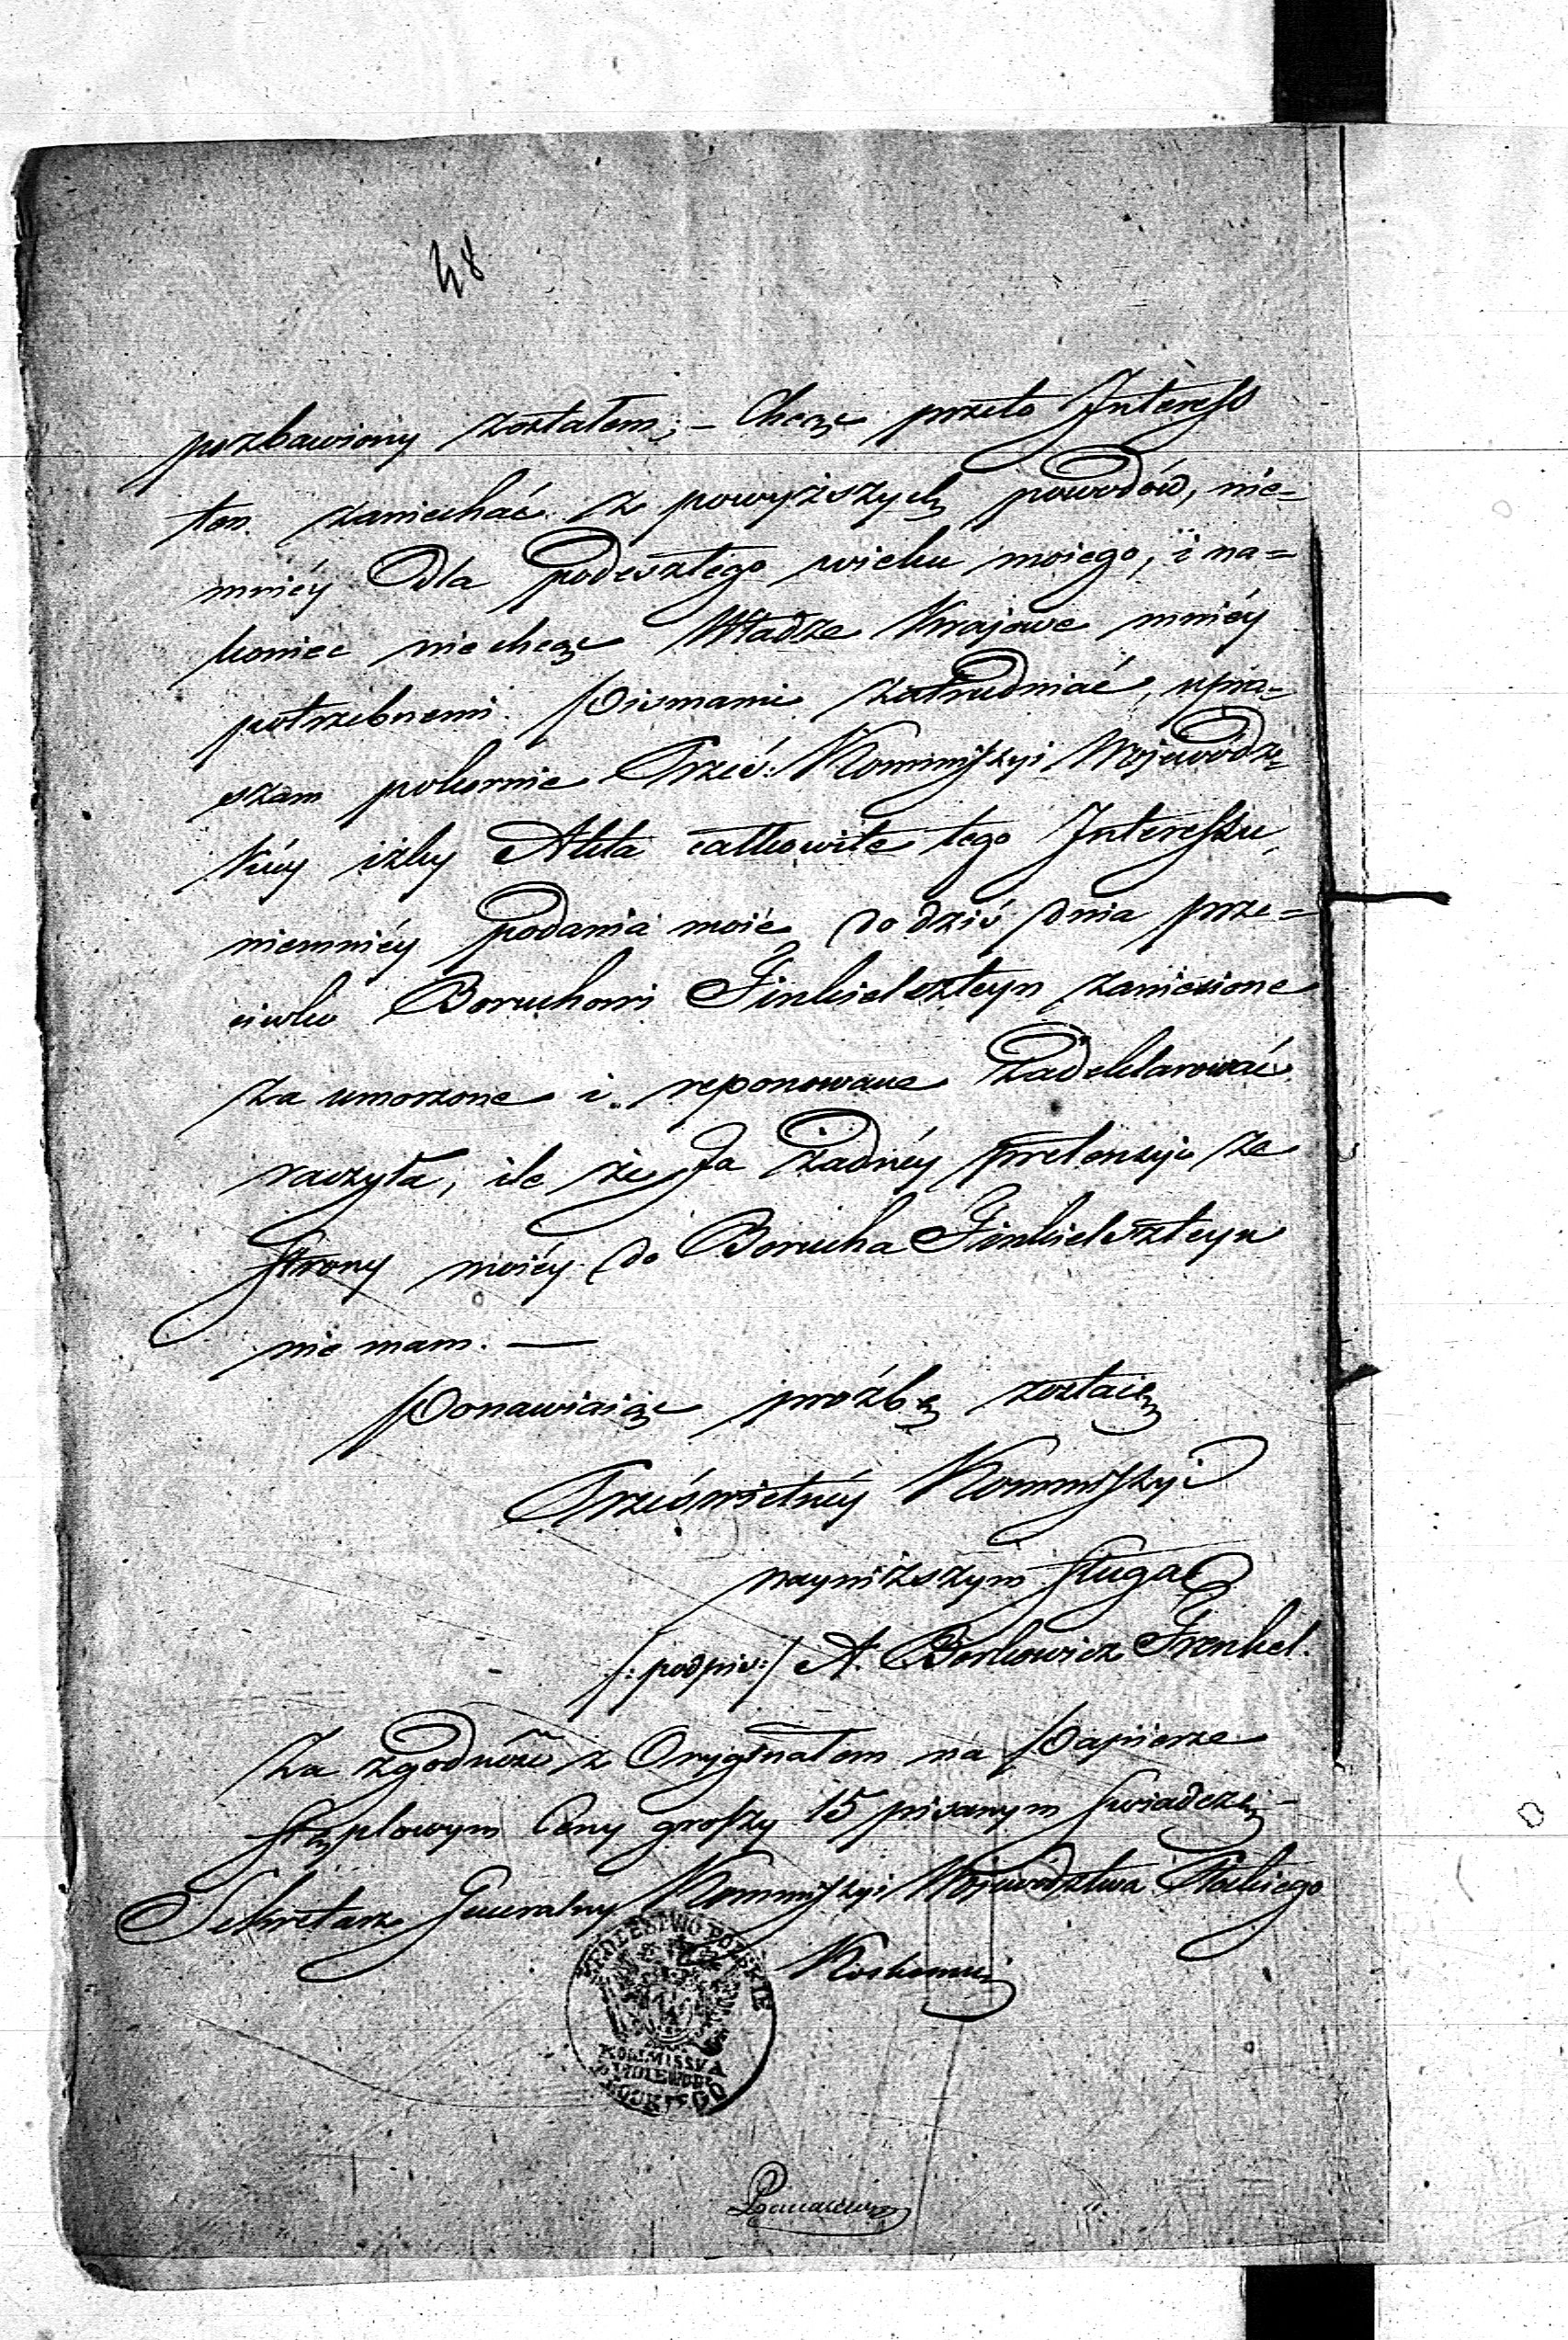 48
pozbawiony zostałem; – Chcąc przeto Interess
ten zaniechać z powyższych powodów, nie=
mniéy dla podeszłego wieku moiego, i na=
koniec nie chcąc Władze Krajowe mniéy
potrzebnemi pismami zatrudniać, upra=
szam pokornie Prześ: Kommissyi Wojewódz=
kiéy iżby Akta całkowite tego Interessu,
niemniéy podania moie do dziś dnia prze=
ciwko Boruchowi Finkielszteyn zaniesione
za umorzone i reponowane zadeklarować
raczyła, ile że Ja żadnéy pretensyi ze
strony moiéy do Borucha Finkielszteyn
nie mam. —
Ponawiaiąc proźbę zostaię
Prześwietnéy Kommissyi
nayniższym sługą
/: podpis :/ A. Borkowicz Frenkel.
Za zgodność z Oryginałem na papierze
stęplowym Ceny groszy 15 pisanym świadczę –
Sekretarz Generalny Kommissyi Województwa Płockiego
KRÓLESTWO POLSKIE
KOMMISSYA
WOIEWODZ
PŁOCKIEGO